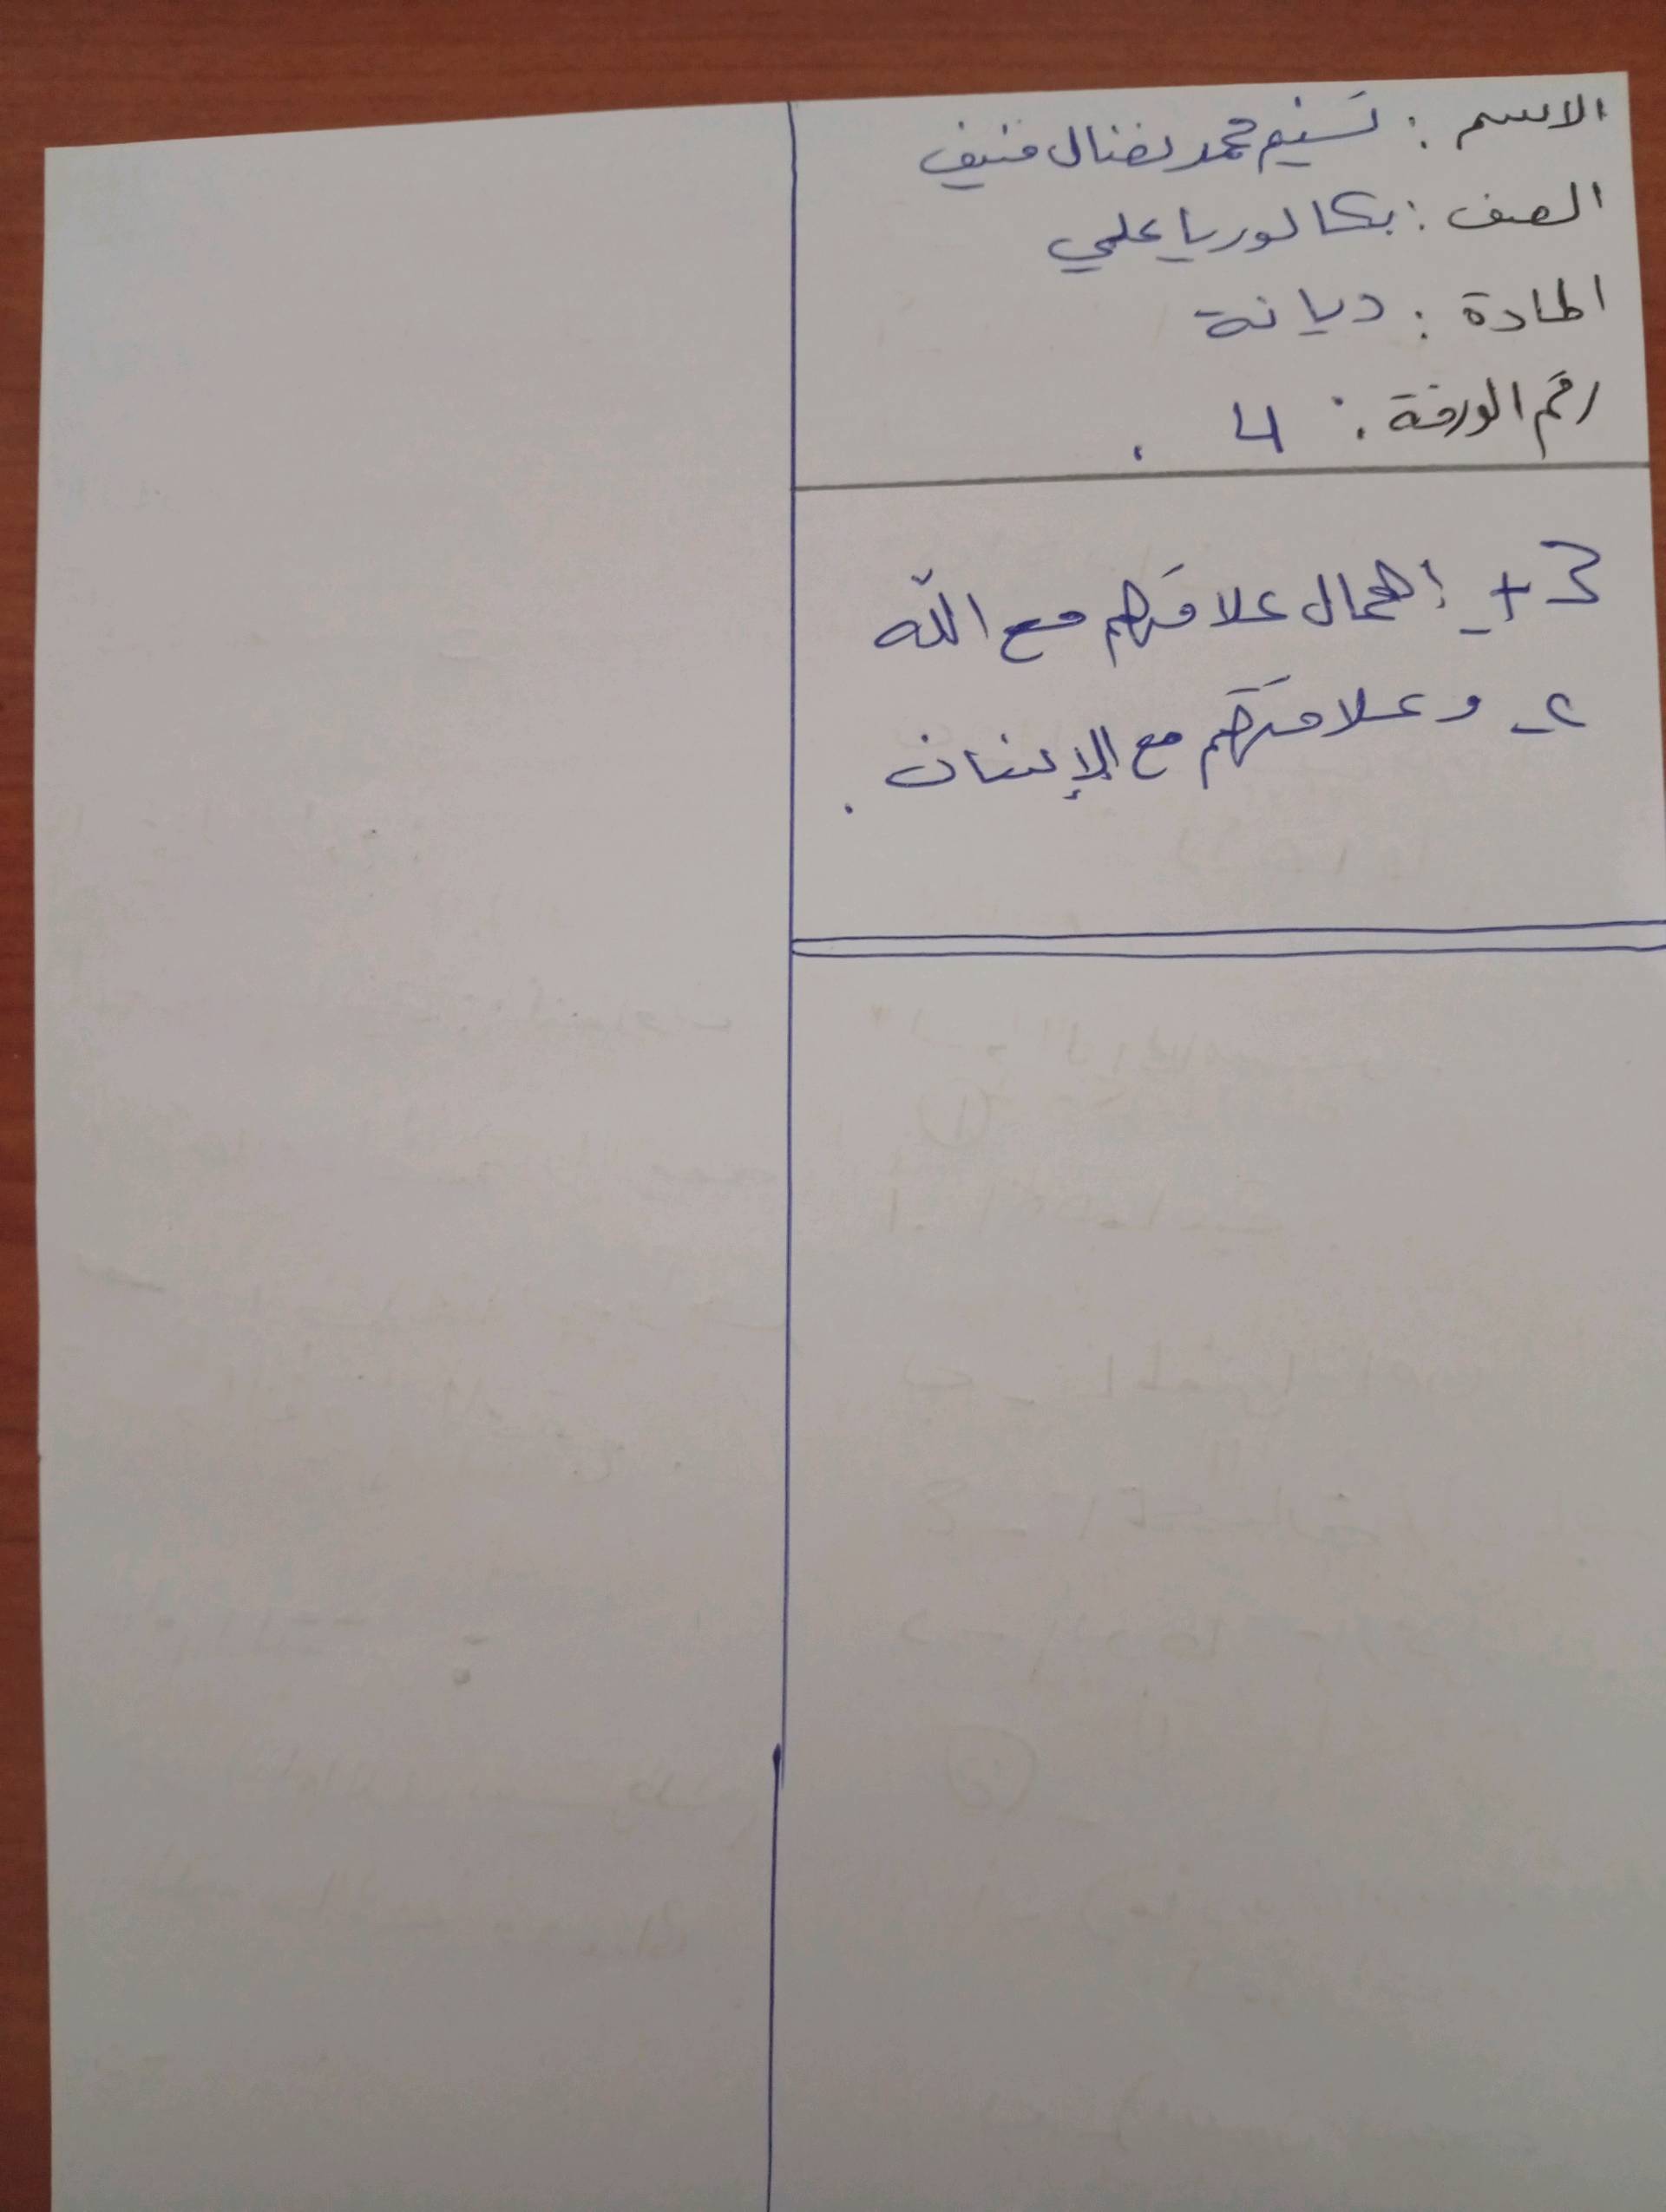 الاسم : تسنيم محمد نضال منيف
الصف : بكالوريا علمي
المادة : ديانة
رقم الورقة : 4 .
3 + إهمال علاقتهم مع الله
2 - وعلاقتهم مع الإنسان .